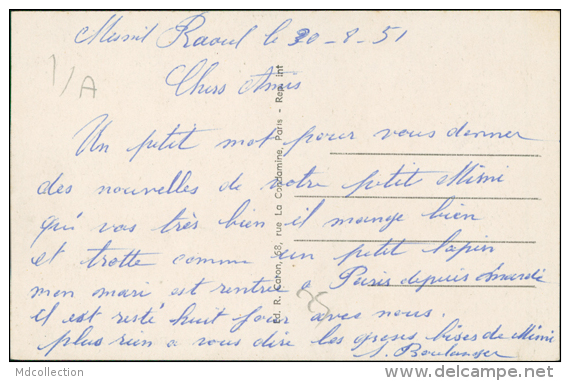 Mesnil Raoul le 30-8-51
1/A
Chers Amis
Un petit mot pour vous donner
des nouvelles de votre petit Mimi
qui vas très bien il mange bien
et trotte comme un petit lapin
mon mari est rentrée a Paris depuis mardi
il est resté huit jour avec nous.
plus rien a vous dire les grosses bises de Mimi
S. Boulanger
Ed. R. Caron, 68, rue La Condamine, Paris - Rep. int
Mdcollection
www.delcampe.net